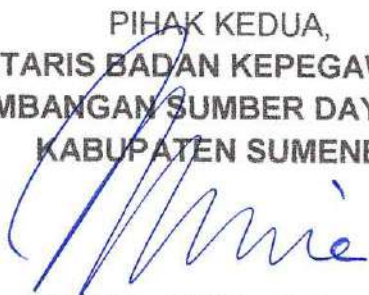 PIHAK KEDUA,
TARIS BADAN KEPEGAW
MBANGAN SUMBER DAY
KABUPATEN SUMENE